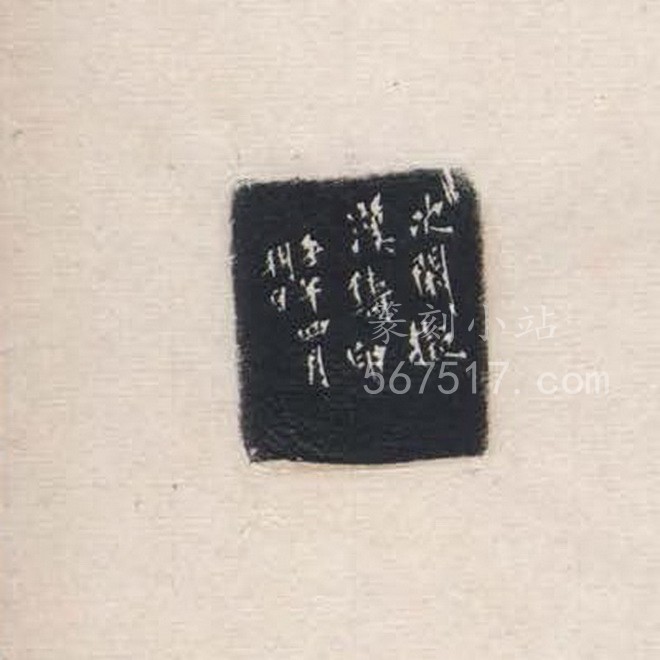 次閑擬
漢鑄印
年四月
朔日
篆刻小站
567517.com